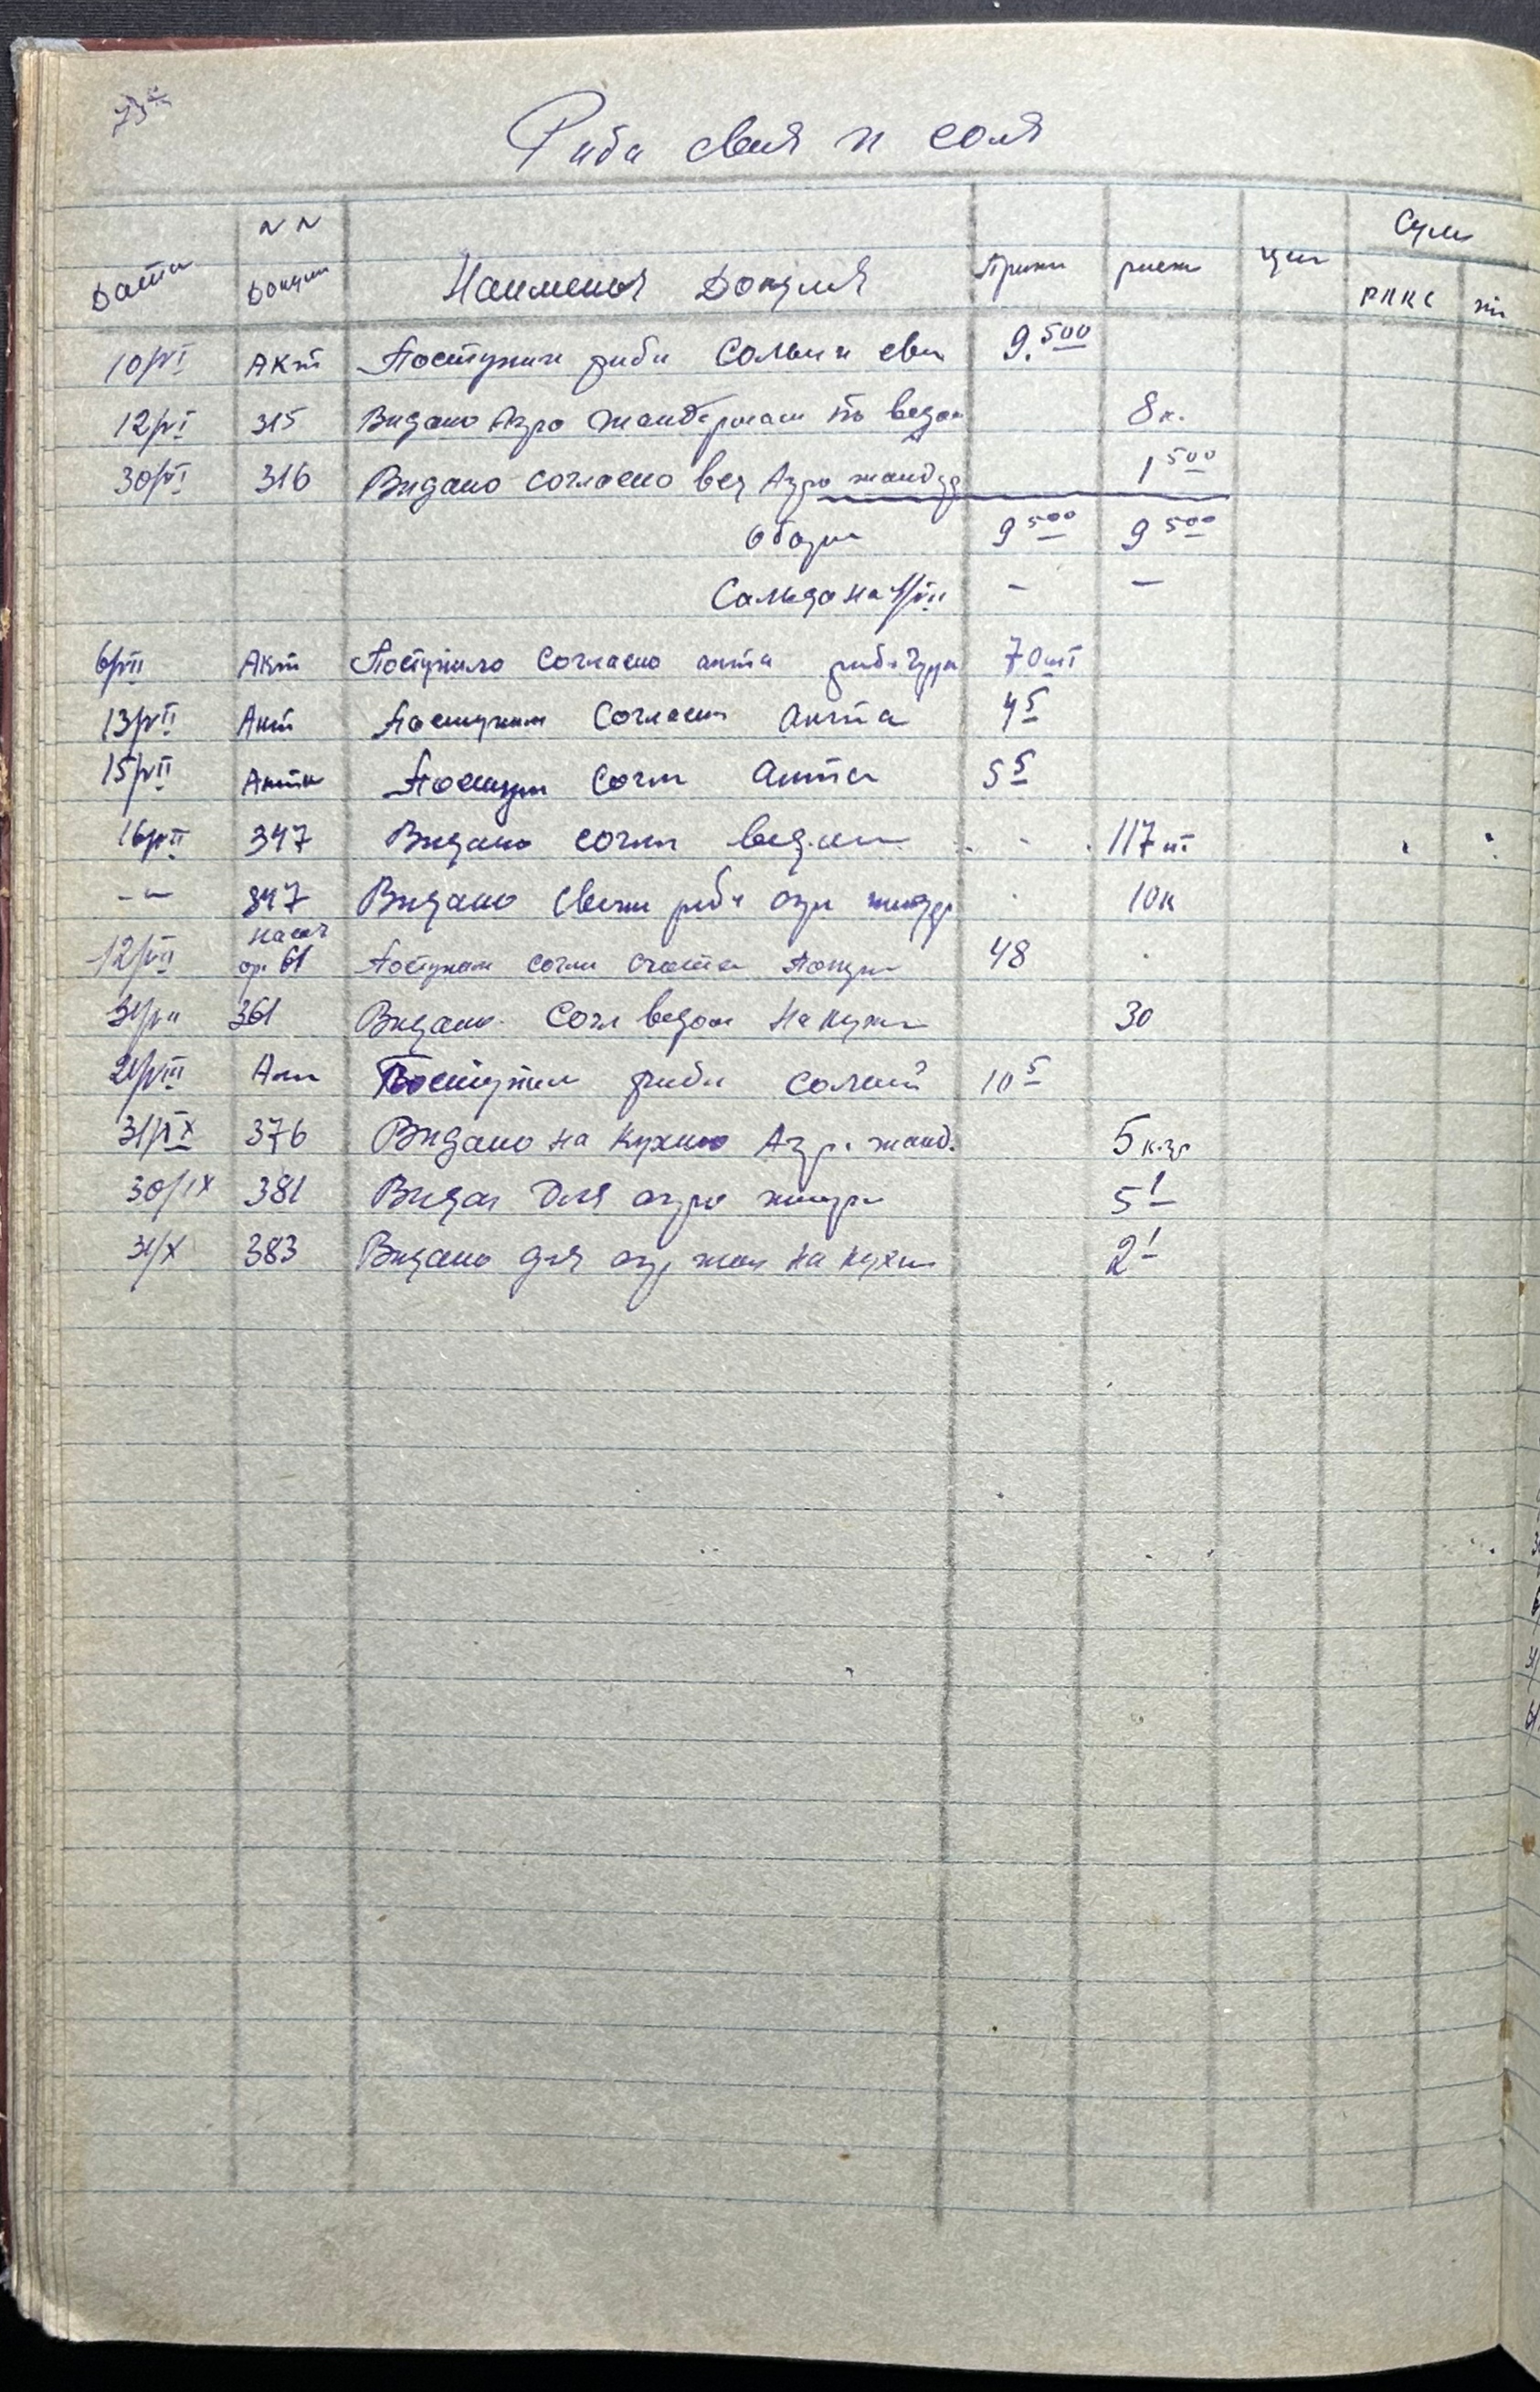 Риба свия и соля
Дата NN Докум Наименов Докумен Прихи расх цин Сум
10/VI Акт Поступили риби Солын и сви 9.500
12/VI 315 Видано Агро жандармам по ведом 8к.
30/VI 316 Видано согласно вед Агро жандар 1 500
Оборы 9 500 9 500
Сальдо на 1/VII – –
6/VII Акт Поступило Согласно акта 70шт
13/VII Акт Поступил Согласн Акта 4 5
15/VII Акта Поступ Согл Акта 5 5
16/VII 347 Видано согл ведом 117 шт
-"- 347 Видано Свежи риби агр жандр 10к
12/VII 61 Поступил согл счета 48
31/VII 361 Видано Согл ведом На кухн 30
21/VIII Акт Поступил риби солёной 10 5
31/IX 376 Видано на кухню Агр. жанд. 5 к.гр
30/IX 381 Видан для агро жандр 5 1
31/X 383 Видано для агр жан на кухн 2 1